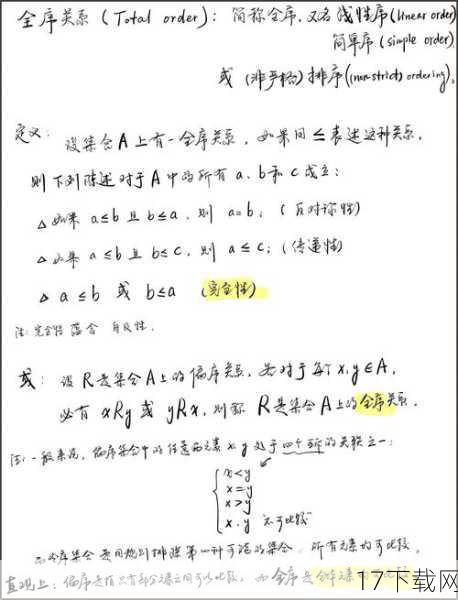 全序关系 (Total order): 简称全序, 又名 线性序 (linear order)
简单序 (simple order)
或 (非严格) 排序 (non-strict ordering)。
定义: 设集合 A 上有一全序关系, 如果用 ≤ 表述这种关系,
则下列陈述对于 A 中的所有 a、b 和 c 成立:
△ 如果 a≤b 且 b≤a, 则 a=b; (反对称性)
△ 如果 a≤b 且 b≤c, 则 a≤c; (传递性)
△ a≤b 或 b≤a (完全性)
注: 完全性 蕴含 自反性.
或: 设 R 是集合 A 上的偏序关系, 若对于每个 x,y∈A,
必有 xRy 或 yRx, 则称 R 是集合 A 上的全序关系.
注: 一般来说, 偏序集合中的任意两元素 x、y 处于四个 的关联之一:
x<y
x=y
x>y
x、y 不可比较
而全序集合 是用规则排除第四种可能的集合, 所有元素均可比较.
直观上: 偏序是指只有部分元素之间可以比较, 而全序是全部元素均可比较
17下载网